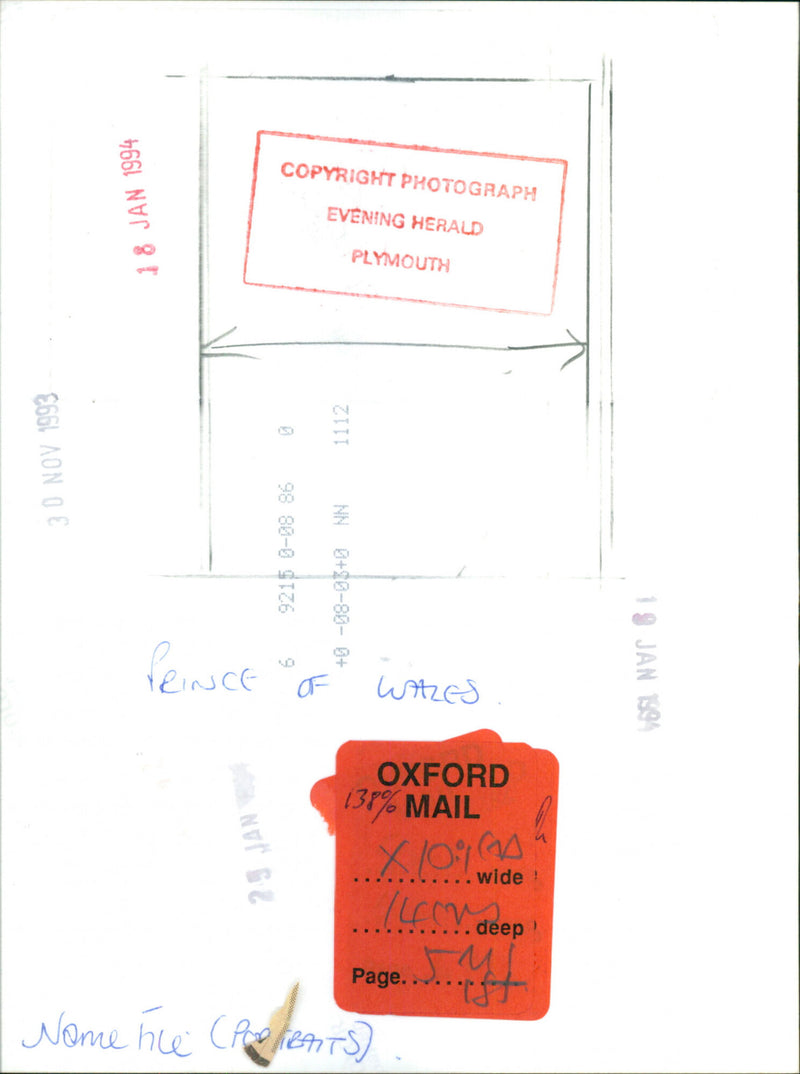 18 JAN 1994
COPYRIGHT PHOTOGRAPH
EVENING HERALD
PLYMOUTH
30 NOV 1993
6 9215 0-08 86 0
+0 -08-03+0 NN 1112
19 JAN 1994
PRINCE OF WALES.
25 JAN
OXFORD
138% MAIL
wide
14cms
deep
Page
1st
Name File (PORTRAITS).